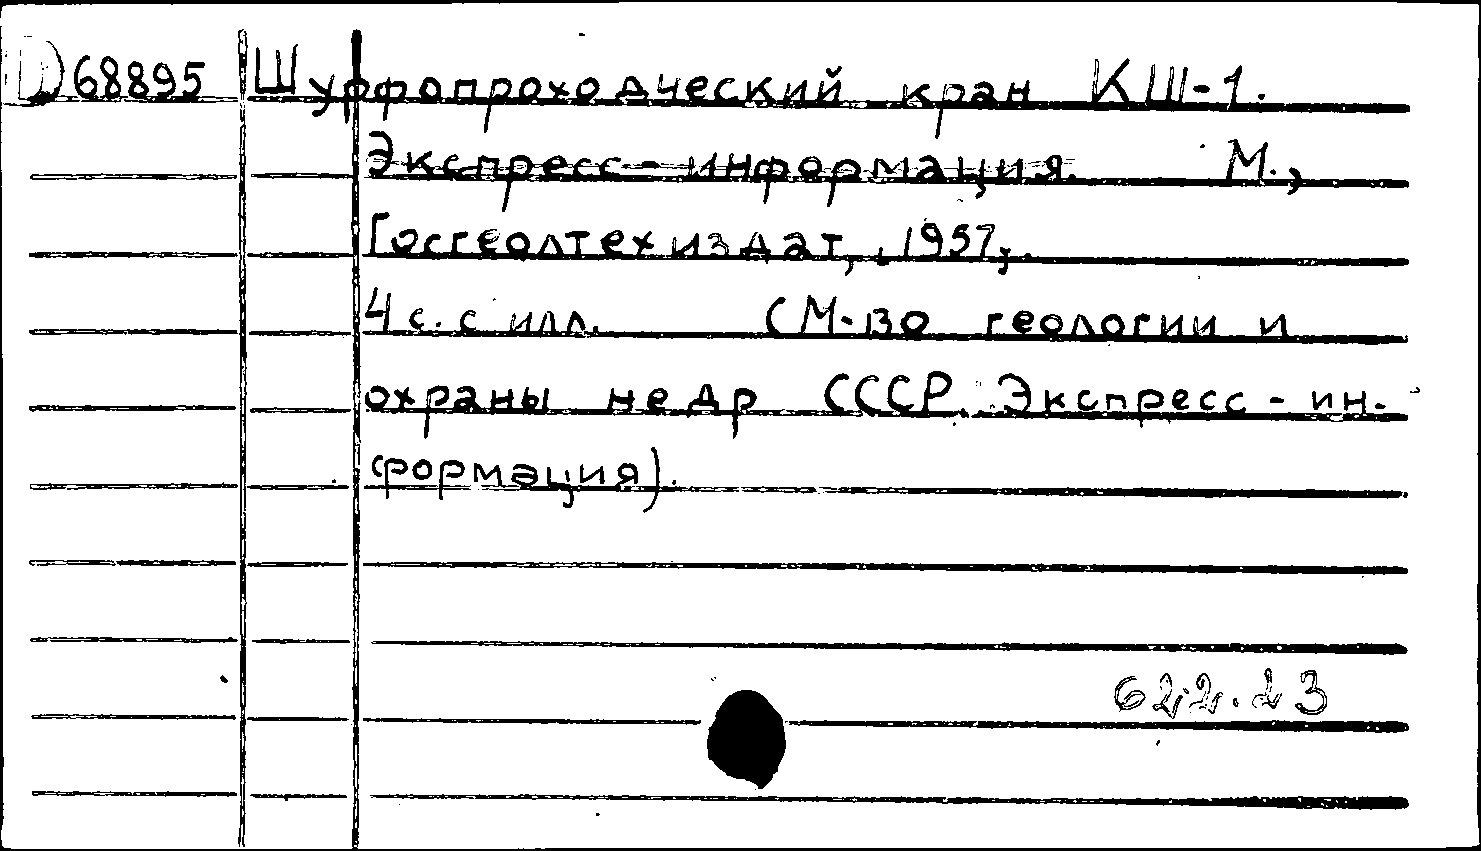 Д68895 Шурфопроходческий кран КШ-1.
Экспресс-информация. М.,
Госгеолтехиздат, 1957,.
4 с. с илл. (М-во геологии и
охраны недр СССР. Экспресс-ин-
формация).
622.23